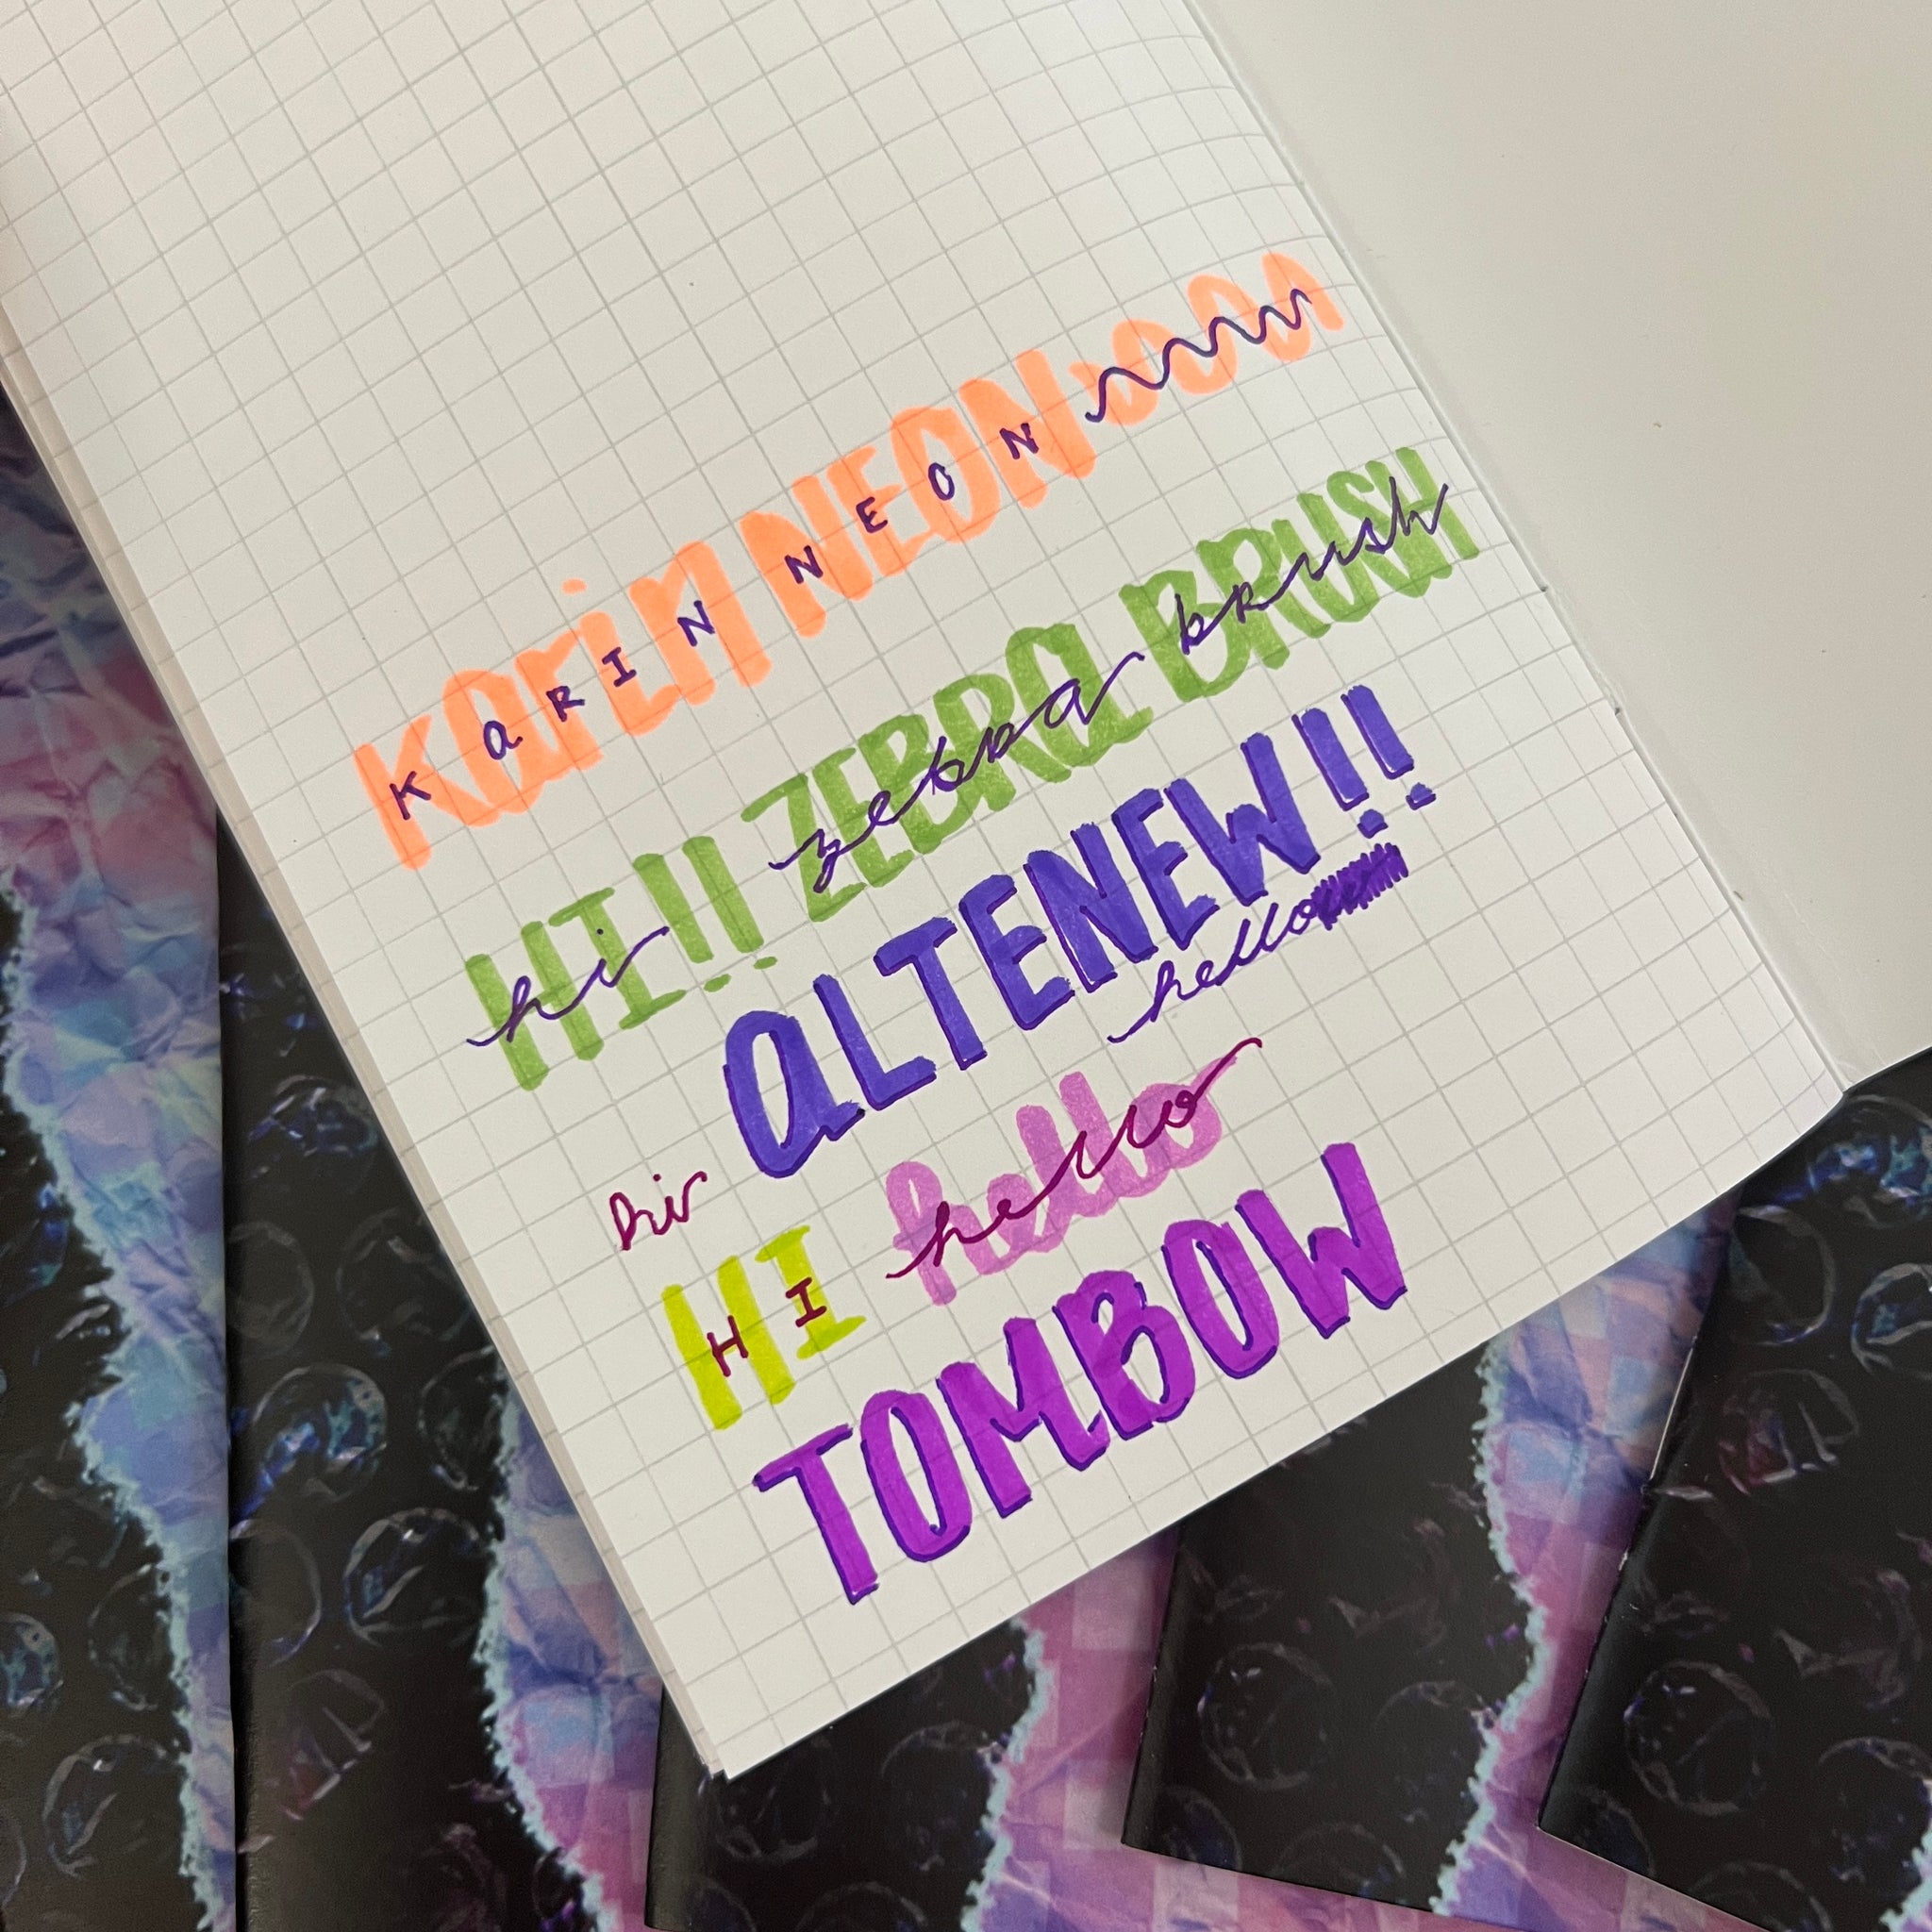 KariN NEON
K a R I N N E O N
HI!! ZEBRa BRUSH
hi zebra brush
aLTENEW!!
hello
hi
HI hello
H I hello
TOMBOW